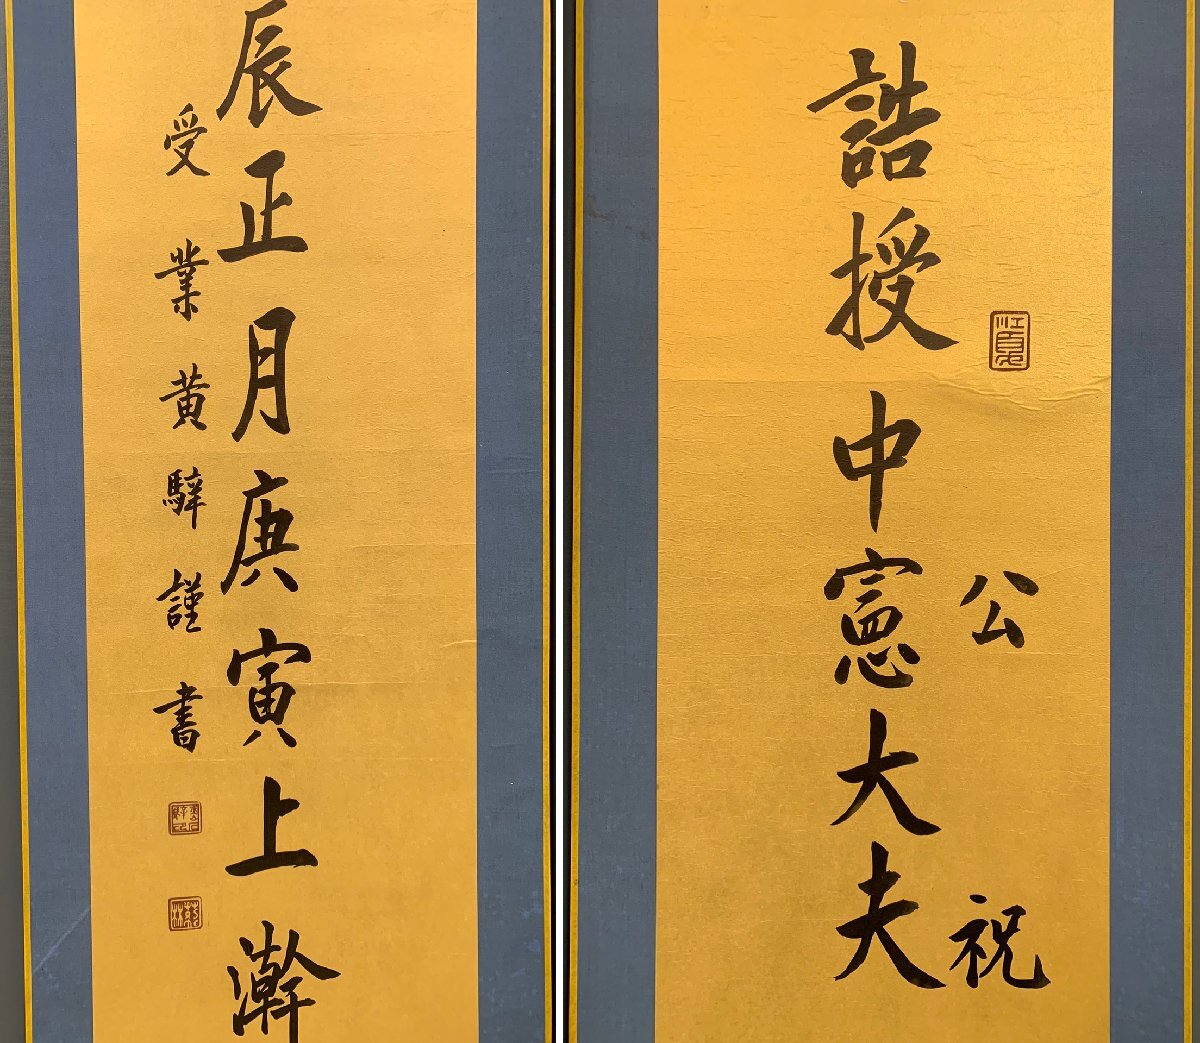 公祝
誥授中憲大夫
辰正月庚寅上澣
受業黃騂謹書